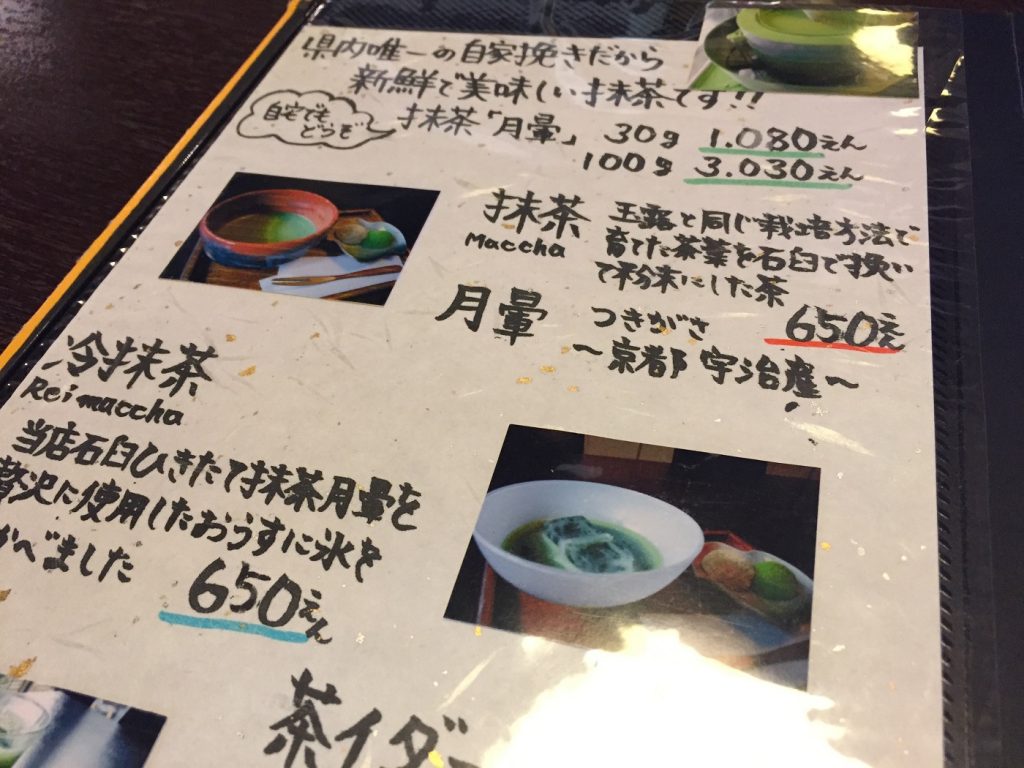 県内唯一の自家挽きだから
新鮮で美味しい抹茶です!!
自宅でも
どうぞ
抹茶「月暈」 30g 1.080えん
100g 3.030えん
抹茶
Maccha
玉露と同じ栽培方法で
育てた茶葉を石臼で挽い
て粉末にした茶
月暈 つきがさ 650えん
〜京都宇治産〜
冷抹茶
Rei maccha
当店石臼ひきたて抹茶月暈を
贅沢に使用したおうすに氷を
かべました
650えん
茶イダー